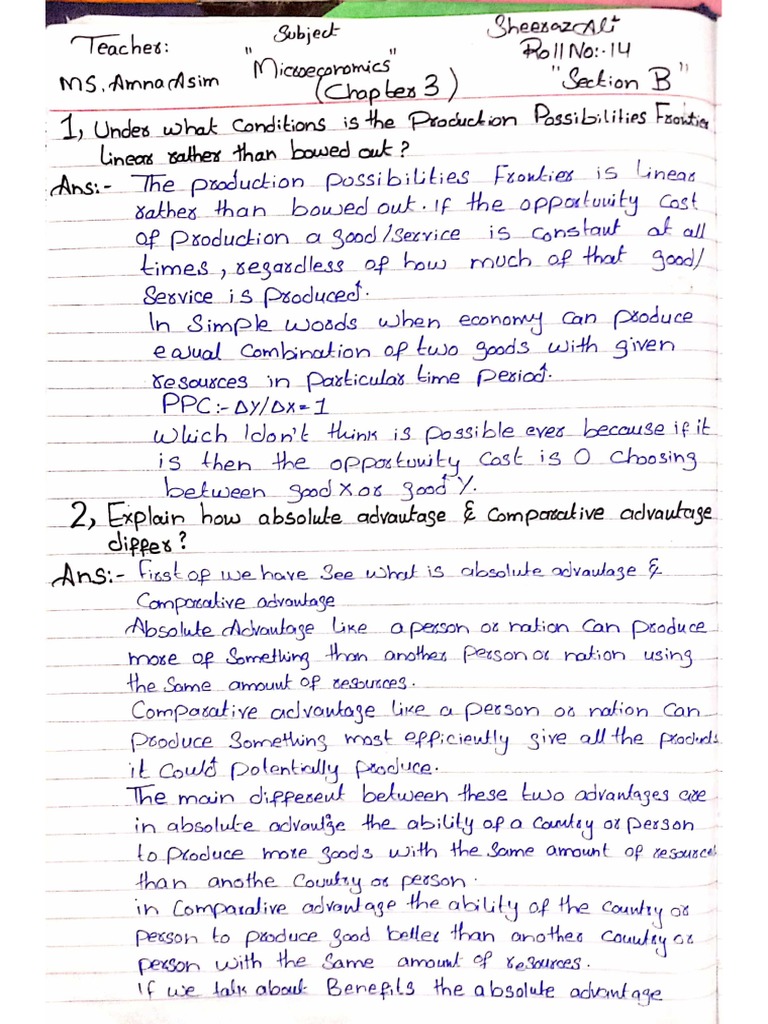 Teacher:
Subject
Sheeraz Ali
MS. Amna Asim
"Microeconomics"
Roll No:-14
(Chapter 3)
"Section B"
1, Under what conditions is the Production Possibilities Frontier
linear rather than bowed out?
Ans:- The production possibilities Frontier is linear
rather than bowed out. if the opportunity cost
of production a good/service is constant at all
times, regardless of how much of that good/
Service is produced.
In Simple words when economy can produce
equal combination of two goods with given
resources in particular time period.
PPC:- ΔY/ΔX=1
which I don't think is possible ever because if it
is then the opportunity cost is 0 choosing
between good X or good Y.
2, Explain how absolute advantage & comparative advantage
differ?
Ans:- First of we have see what is absolute advantage &
Comparative advantage
Absolute Advantage like a person or nation can produce
more of something than another person or nation using
the same amount of resources.
Comparative advantage like a person or nation can
produce something most efficiently give all the products
it could potentially produce.
The main different between these two advantages are
in absolute advantge the ability of a country or person
to produce more goods with the same amount of resources
than anothe country or person.
in comparative advantage the ability of the country or
person to produce good better than another country or
person with the same amount of resources.
If we talk about Benefits the absolute advantage